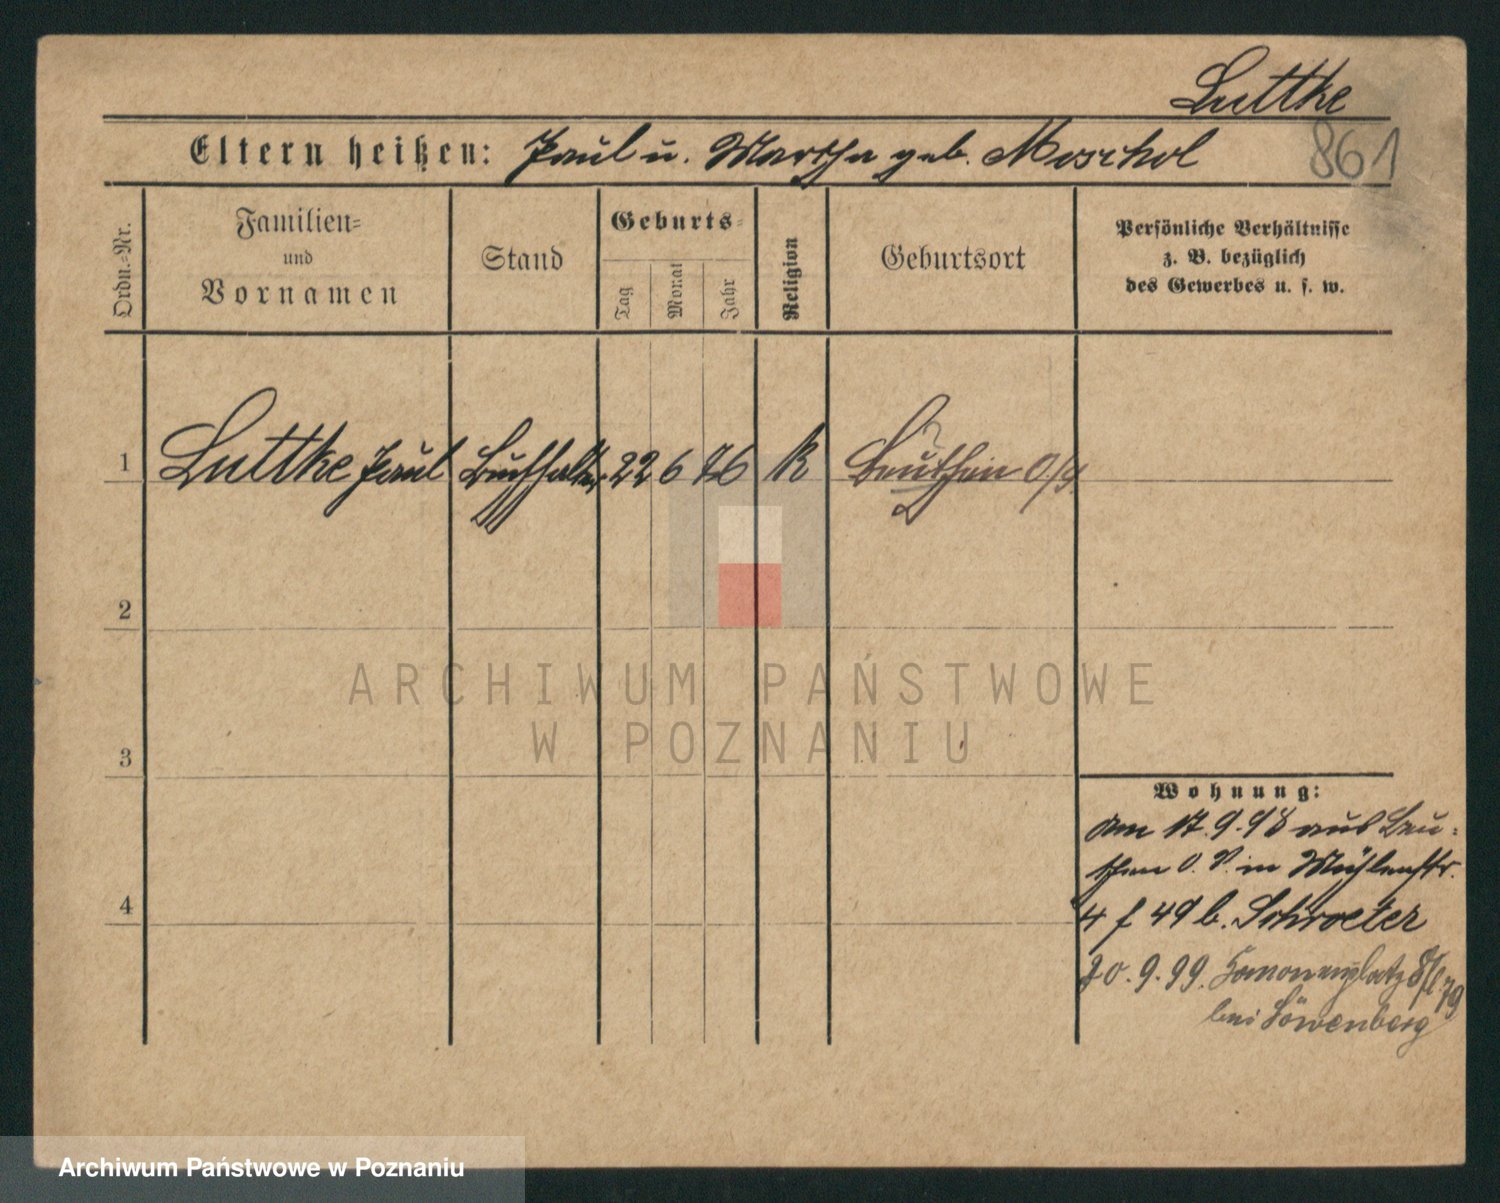 Luttke
861
Eltern heißen: Paul u. Martha geb. Moschol
Ordn.-Nr.
Familien-
und
Vornamen
Stand
Geburts-
Tag
Monat
Jahr
Religion
Geburtsort
Persönliche Verhältnisse
z. B. bezüglich
des Gewerbes u. s. w.
1 Luttke Paul Buchhalter 22 6 76 K Beuthen O/S
2
3
4
Wohnung:
am 17.9.98 aus Beu-
then O. S. in Mühlenstr.
4 f 49 b. Schroeter
20.9.99.
bei Löwenberg
ARCHIWUM PAŃSTWOWE
W POZNANIU
Archiwum Państwowe w Poznaniu